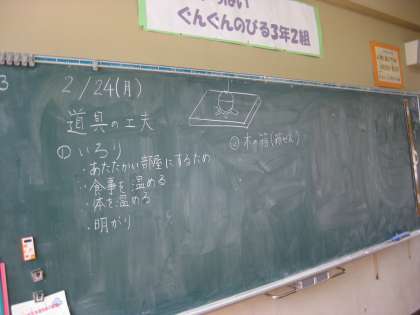 ぐんぐんのびる3年2組
3
2/24(月)
道具の工夫
① いろり
・あたたかい部屋にするため
・食事を温める
・体を温める
・明かり
② 木の箱(箱せん)